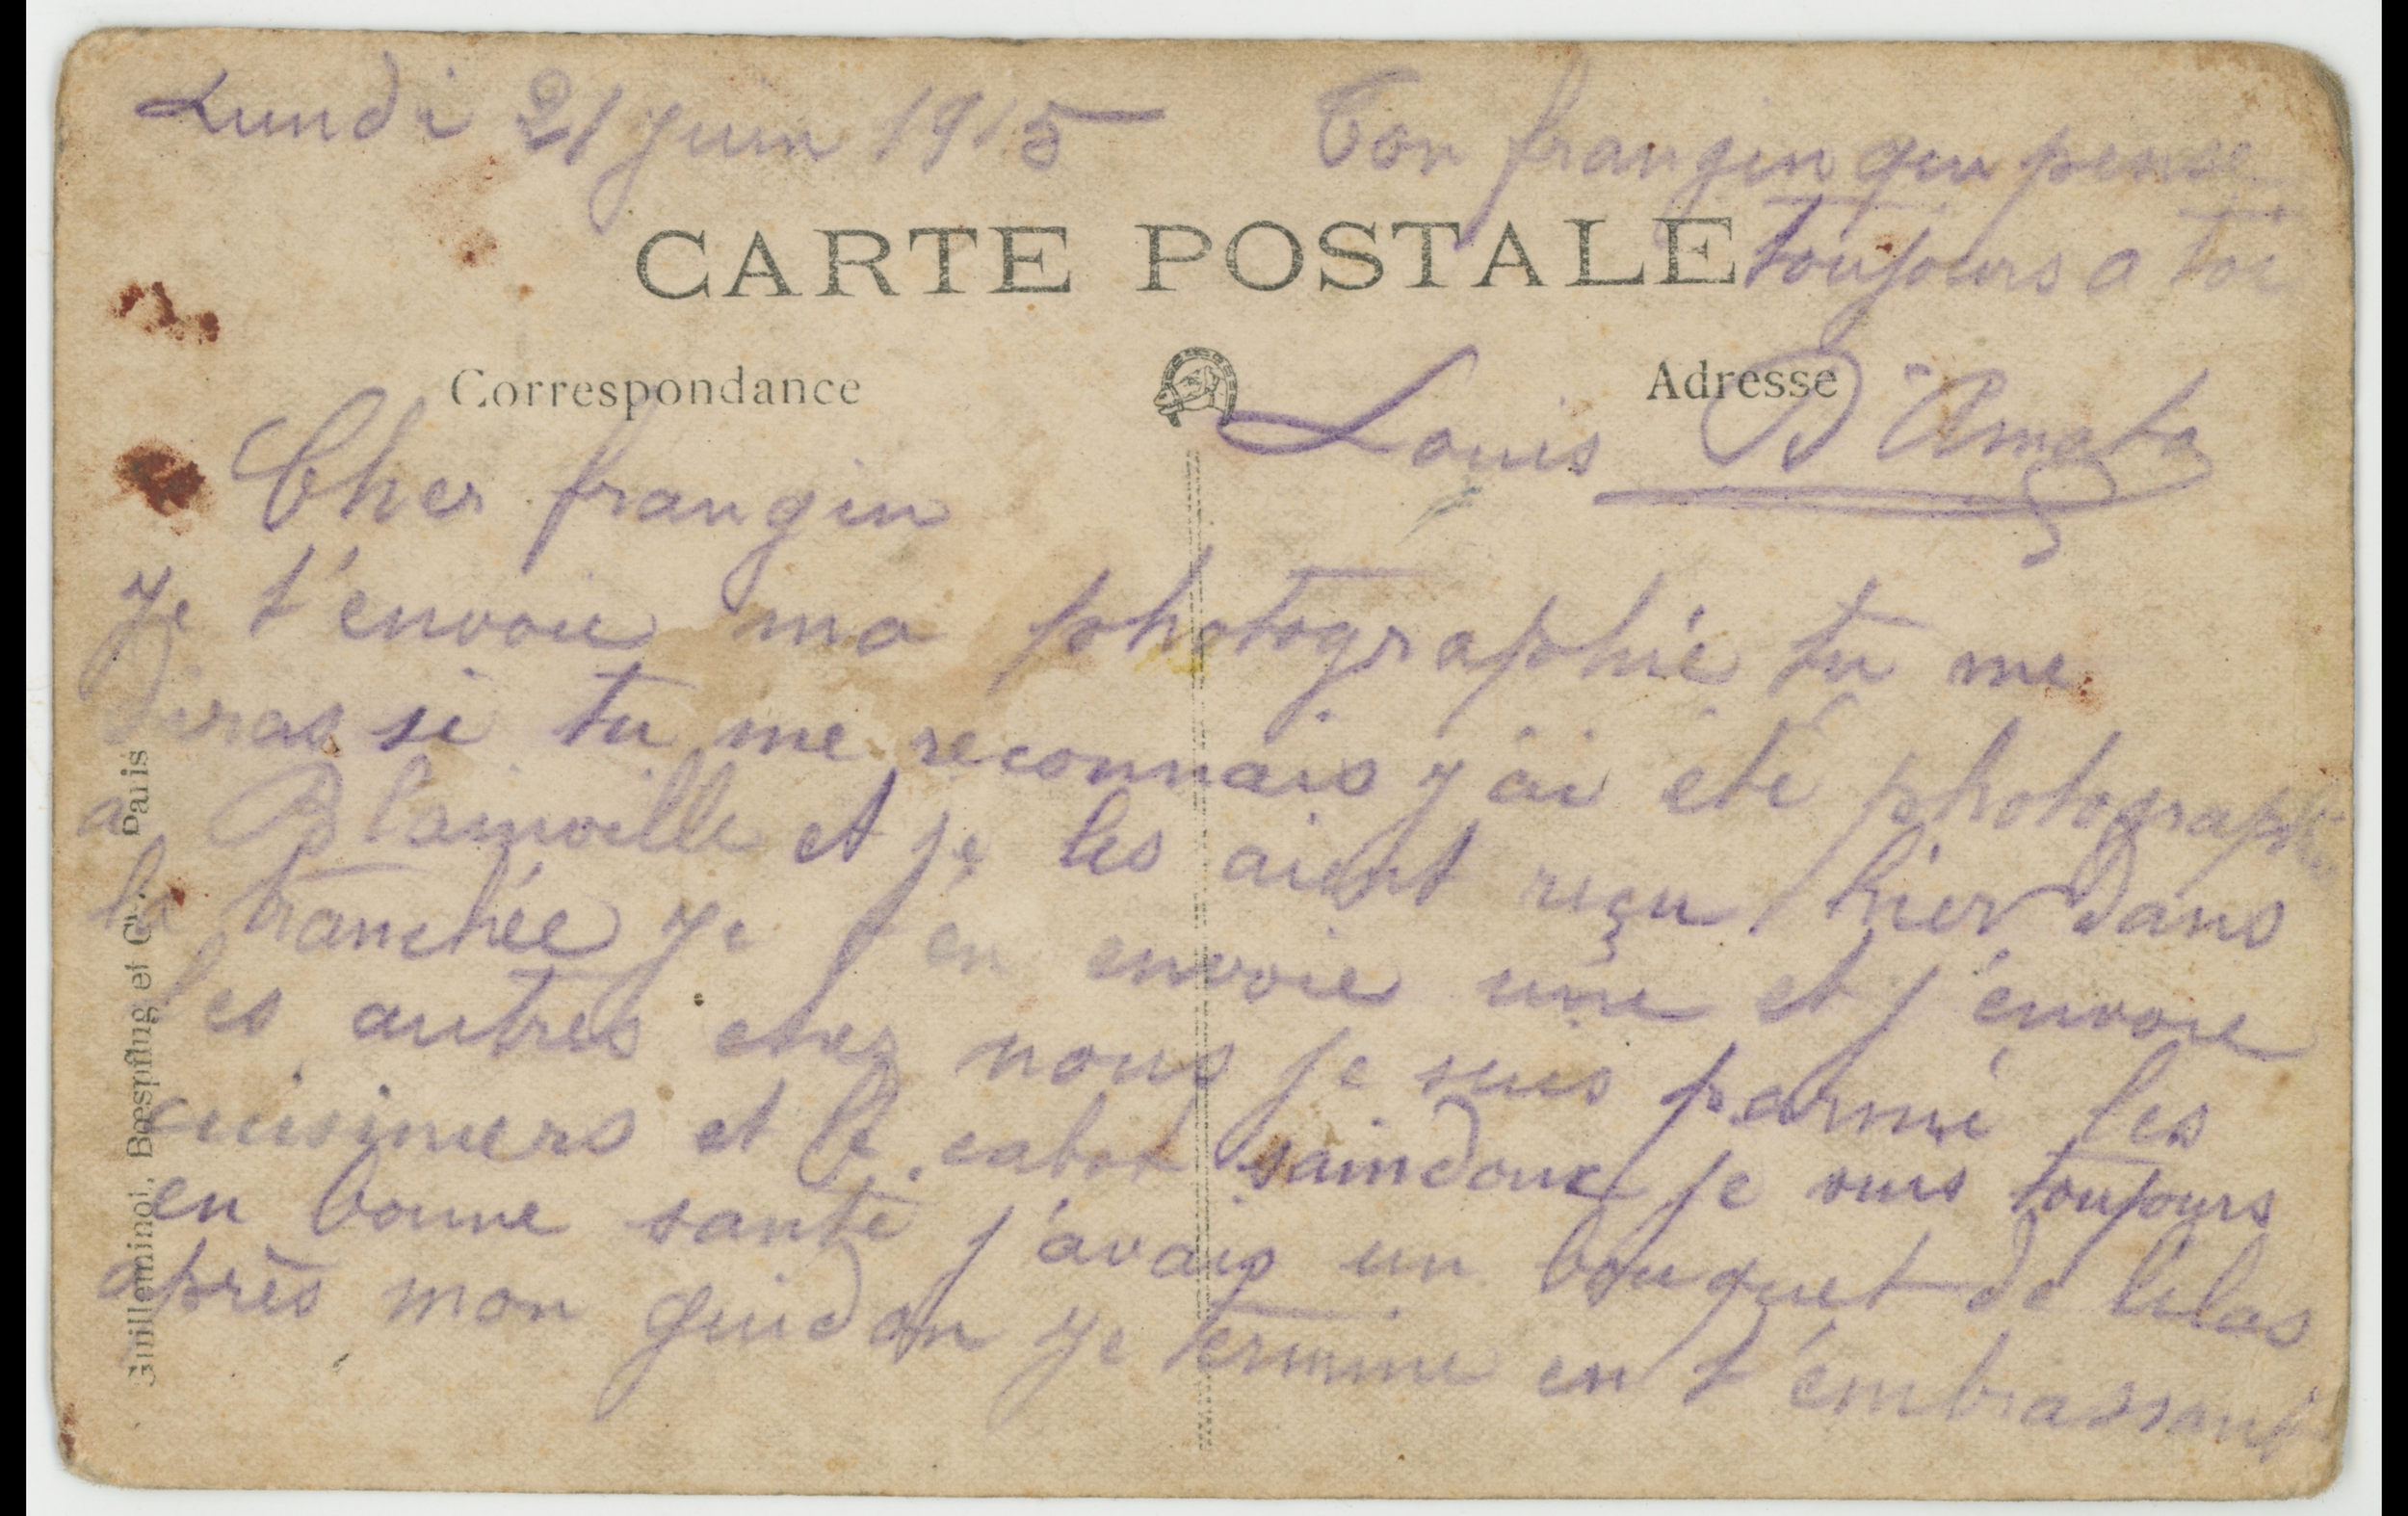 Lundi 21 juin 1915
Ton frangin qui pense
toujours a toi
CARTE POSTALE
Correspondance
Adresse
Louis D'Amato
Cher frangin
Je t'envoie ma photographie tu me
diras si tu me reconnais j'ai été photographié
a Blainville et je les aient reçu hier dans
la tranchée je t'en envoie une et j'envoie
les autres chez nous je suis parmi les
cuisiniers et le cabot saindoux je suis toujours
en bonne santé j'avais un bouquet de lilas
après mon guidon je termine en t'embrassant
Guilleminot, Boespflug et Cie. Paris